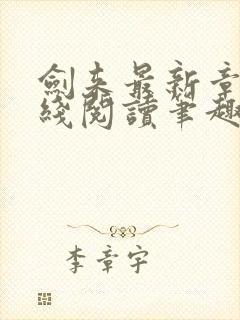 劍来最新章
綫閱讀筆趣
李章宇